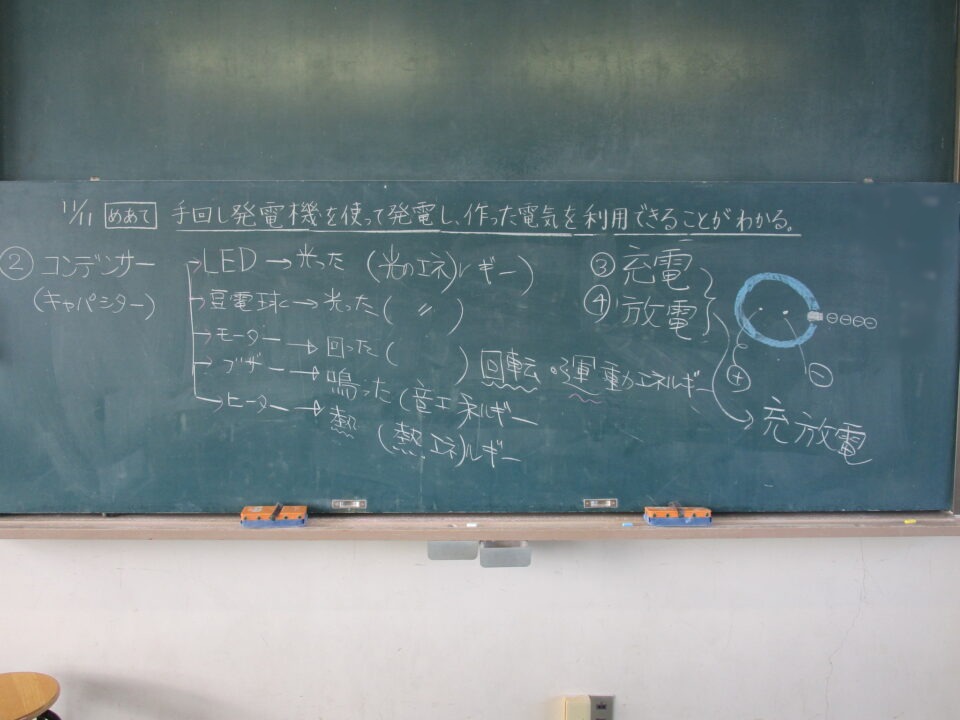 11/11 めあて 手回し発電機を使って発電し、作った電気を利用できることがわかる。
② コンデンサー
(キャパシター)
→LED→光った (光のエネ)ルギー)
→豆電球に→光った( 〃 )
→モーター→回った( ) 回転・運動エネルギー
→ブザー→鳴った(音エネルギー
→ヒーター→熱 (熱エネ)ルギー
③ 充電
④ 放電
→充放電
⊕ ⊖
⊖⊖⊖⊖